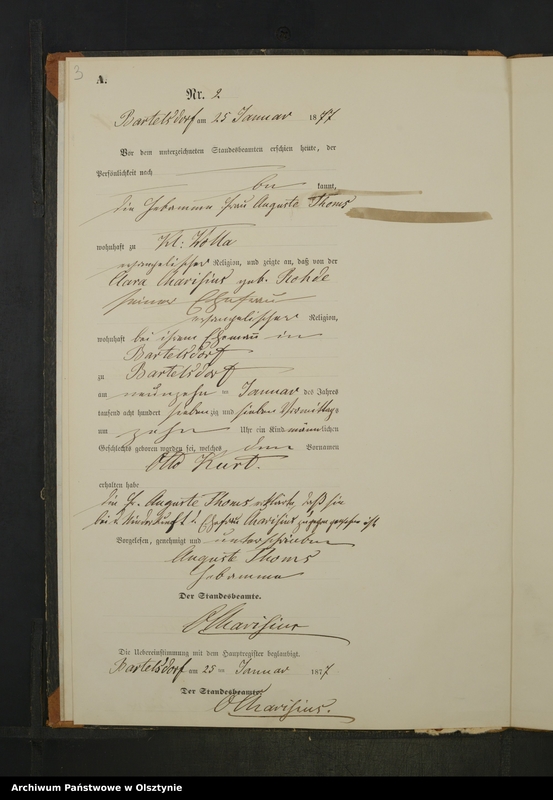 3
A.
Nr. 2
Bartelsdorf am 25 Januar 1877
Vor dem unterzeichneten Standesbeamten erschien heute, der
Persönlichkeit nach
be kannt,
die Hebamme Frau Auguste Thoms
wohnhaft zu Kl:
evangelischer Religion, und zeigte an, daß von der
Clara Charisius geb. Rohde
seiner Ehefrau
evangelischer Religion,
wohnhaft bei ihrem Ehemann in
Bartelsdorf
zu Bartelsdorf
am neunzehn Januar des Jahres
tausend acht hundert siebenzig und sieben Vormittags
um zehn Uhr ein Kind männlichen
Geschlechts geboren worden sei, welches den Vornamen
Otto Kurt.
erhalten habe
die Fr. Auguste Thoms erklärte, daß sie
bei d. Niederkunft d. Ehefrau Charisius zugegen gewesen ist
Vorgelesen, genehmigt und unterschrieben
Auguste Thoms
Hebamme
Der Standesbeamte.
Charisius
Die Uebereinstimmung mit dem Hauptregister beglaubigt.
Bartelsdorf am 25 Januar 1877
Der Standesbeamte
Charisius.
Archiwum Państwowe w Olsztynie